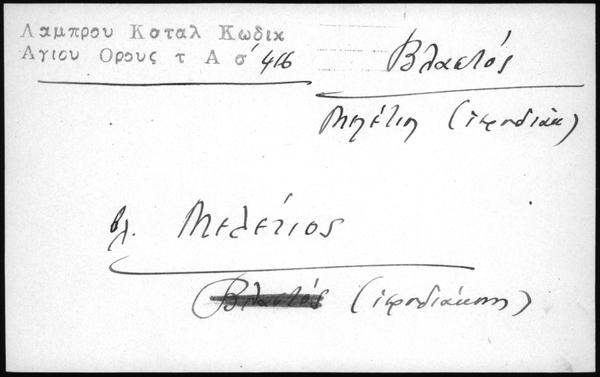 Λαμπρου Καταλ Κωδικ
Αγιου Ορους τ Α σ' 416
Βλαστός
Μελέτιος (ἱεροδιάκ)
βλ. Μελέτιος
Βλαστός (ἱεροδιάκονος)